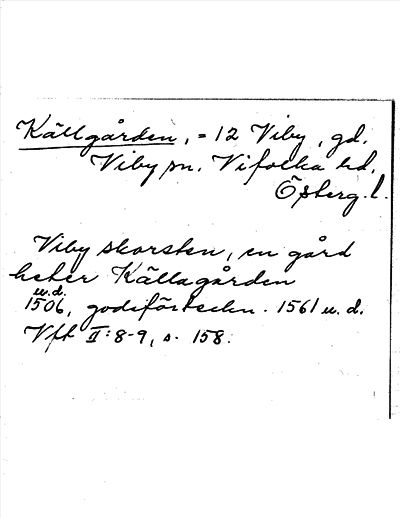 Källgården, = 12 Viby, gd,
Viby sn. Vifolka hd,
Österg. l.
Viby skorsten, en gård
heter Källagården
u.d.
1506, godsförteckn. 1561 u. d.
Vfk II:8-9, s. 158.